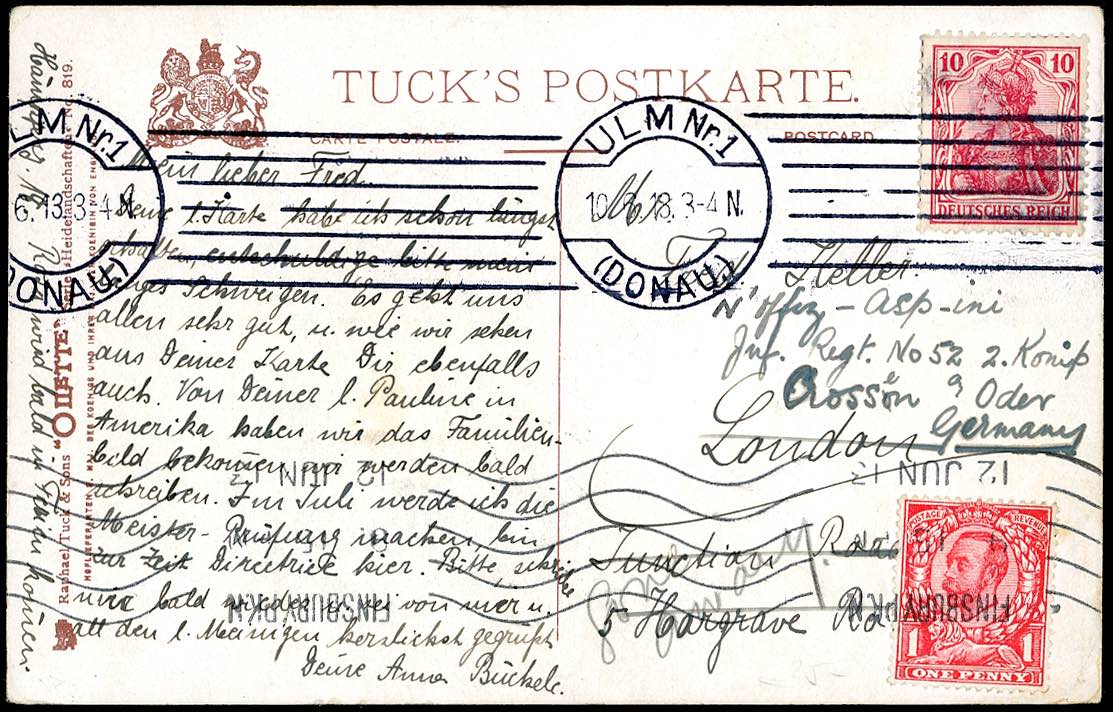 TUCK'S POSTKARTE.
CARTE POSTALE.
POSTCARD
Mein lieber Fred.
Deine l. Karte habe ich schon längst
erhalten, entschuldige bitte mein
langes Schweigen. Es geht uns
allen sehr gut, u. wie wir sehen
aus Deiner Karte Dir ebenfalls
auch. Von Deiner l. Pauline in
Amerika haben wir das Familien-
bild bekommen wir werden bald
schreiben. Im Juli werde ich die
Meister-Prüfung machen bin
zur Zeit Directrice hier. Bitte schreibe
mir bald wieder u. sei von mir u.
all den l. Meinigen herzlichst gegrüßt
Deine Anna Bückele.
bald in
Raphael Tuck & Sons "OILETTE"
"Heidelandschaften" No. 819.
ULM Nr.1
6.13.3-4N.
(DONAU)
ULM Nr.1
10.6.13.3-4N.
(DONAU)
10 10
DEUTSCHES REICH
Heller
N'Offiz-Asp-ini
Inf. Regt. No 52 2. Komp
Crossen a Oder
Germany
London
Junction Road
5 Hargrave Ro
Gone away
12 JUN 13
12 JUN 13
FINSBURY PK.N
FINSBURY PK.N
POSTAGE REVENUE
1 1
ONE PENNY